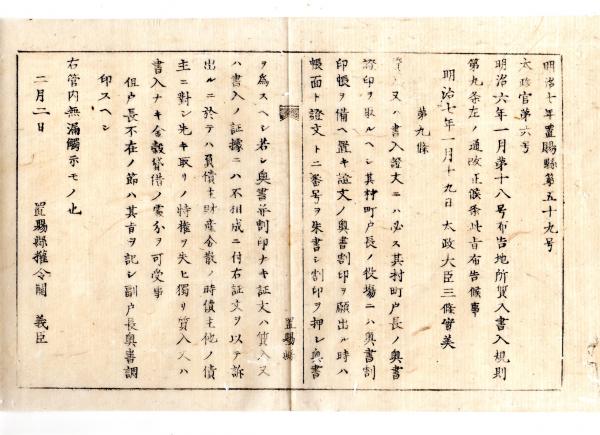 明治七年置賜縣第五十九号
太政官第六号
明治六年一月第十八号布告地所質入書入規則
第九条左ノ通改正候条此旨布告候事
明治七年一月十九日 太政大臣三條實美
第九條
又ハ書入證文ニハ必ス其村町戸長ノ奥書
證印ヲ取ルヘシ其村町戸長ノ役場ニハ奥書割
印帳ヲ備ヘ置キ證文ノ奥書割印ヲ願出ル時ハ
帳面ト證文トニ番号ヲ朱書シ割印ヲ押シ奥書
置賜縣
ヲ為スヘシ若シ奥書并割印ナキ証文ハ質入又
ハ書入ノ証據ニハ不相成ニ付右証文ヲ以テ訴
出ルニ於テハ負債主財産分散ノ時債主他ノ債
主ニ對シ先キ取リノ特権ヲ失ヒ獨リ質入又ハ
書入ナキ金穀貸借ノ處分ヲ可受事
但戸長不在ノ節ハ其旨ヲ記シ副戸長奥書調
印スヘシ
右管内無漏觸示モノ也
二月二日 置賜縣権令關 義臣